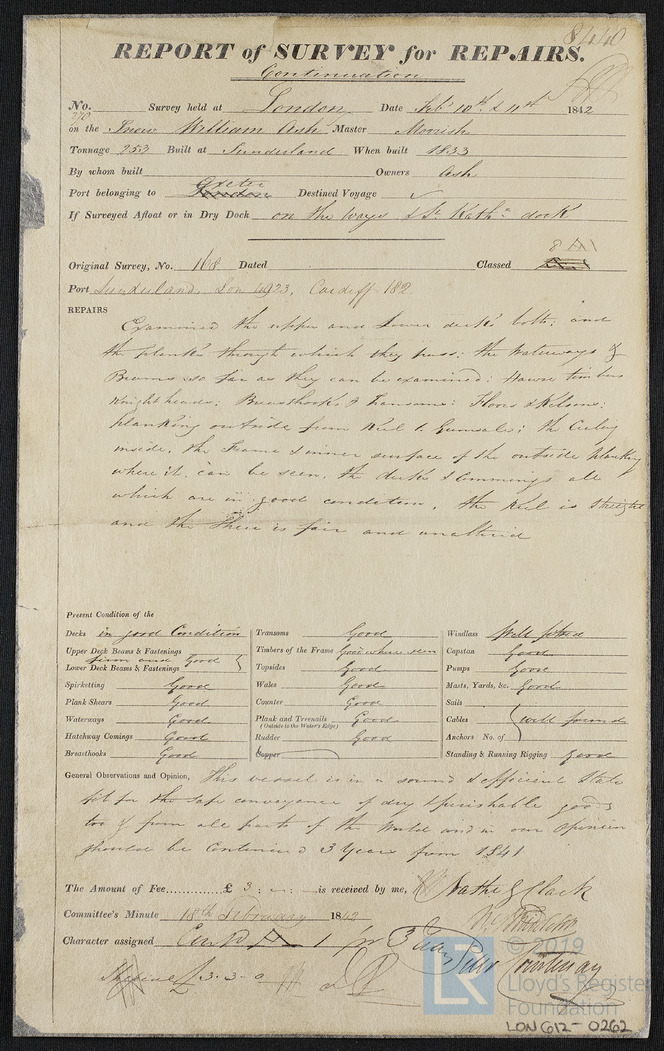 8440
REPORT of SURVEY for REPAIRS.
Continuation
No. Survey held at London Date Feby 10th & 11th 1842
on the Snow William Ash Master Moorish
Tonnage 253 Built at Sunderland When built 1833
By whom built Owners Ash
Port belonging to Exeter London Destined Voyage ✓
If Surveyed Afloat or in Dry Dock on the ways & St Kathe dock
Original Survey, No. 168 Dated Classed 8 A1
Port Sunderland, Lon 6923, Cardiff 182
REPAIRS
Examined the upper and lower decks both; and
the planks through which they pass; the Waterways &
Beams so far as they can be examined: Hawse timbers
Knightheads; Breasthooks & Transoms: Floors & Kelsons:
planking outside from Keel to Gunwale; the Ceiling
inside, the Frame & inner surface of the outside planking
where it can be seen, the decks & Commings all
which are in good condition. the Keel is streight
and the Sheer is fair and unaltered
Present Condition of the
Decks in good Condition
Upper Deck Beams & Fastenings
firm and Good
Lower Deck Beams & Fastenings
Spirketting Good
Plank Shears Good
Waterways Good
Hatchway Comings Good
Breasthooks Good
Transoms Good
Timbers of the Frame Good where seen
Topsides Good
Wales Good
Counter Good
Plank and Treenails Good
(Outside to the Water's Edge)
Rudder Good
Copper
Windlass Well fitted
Capstan Good
Pumps Good
Masts, Yards, &c. Good
Sails
Cables well found
Anchors No. of
Standing & Running Rigging Good
General Observations and Opinion, This vessel is in a sound & efficient State
fit for the safe conveyance of dry & perishable goods
too & from all parts of the World and in our Opinion
should be Continued 3 Years from 1841
The Amount of Fee............£ 3 : - : - is received by me, Nathl G Clark
Committee's Minute 18th February 1842
Character assigned Contd A 1 for 3 Years
Peter Courtenay
£ 3.3.0
© 2019
Lloyd's Register
Foundation
LR
LON 612- 0262